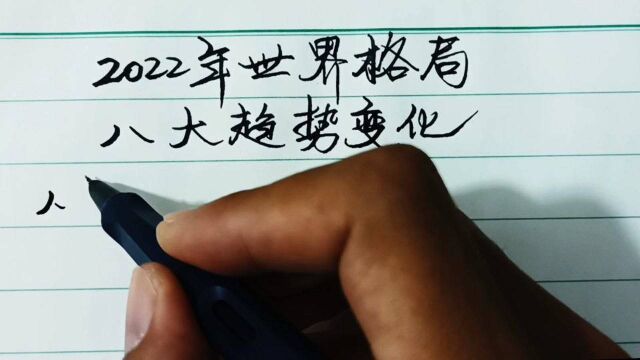 2022年世界格局
八大趋势变化
人